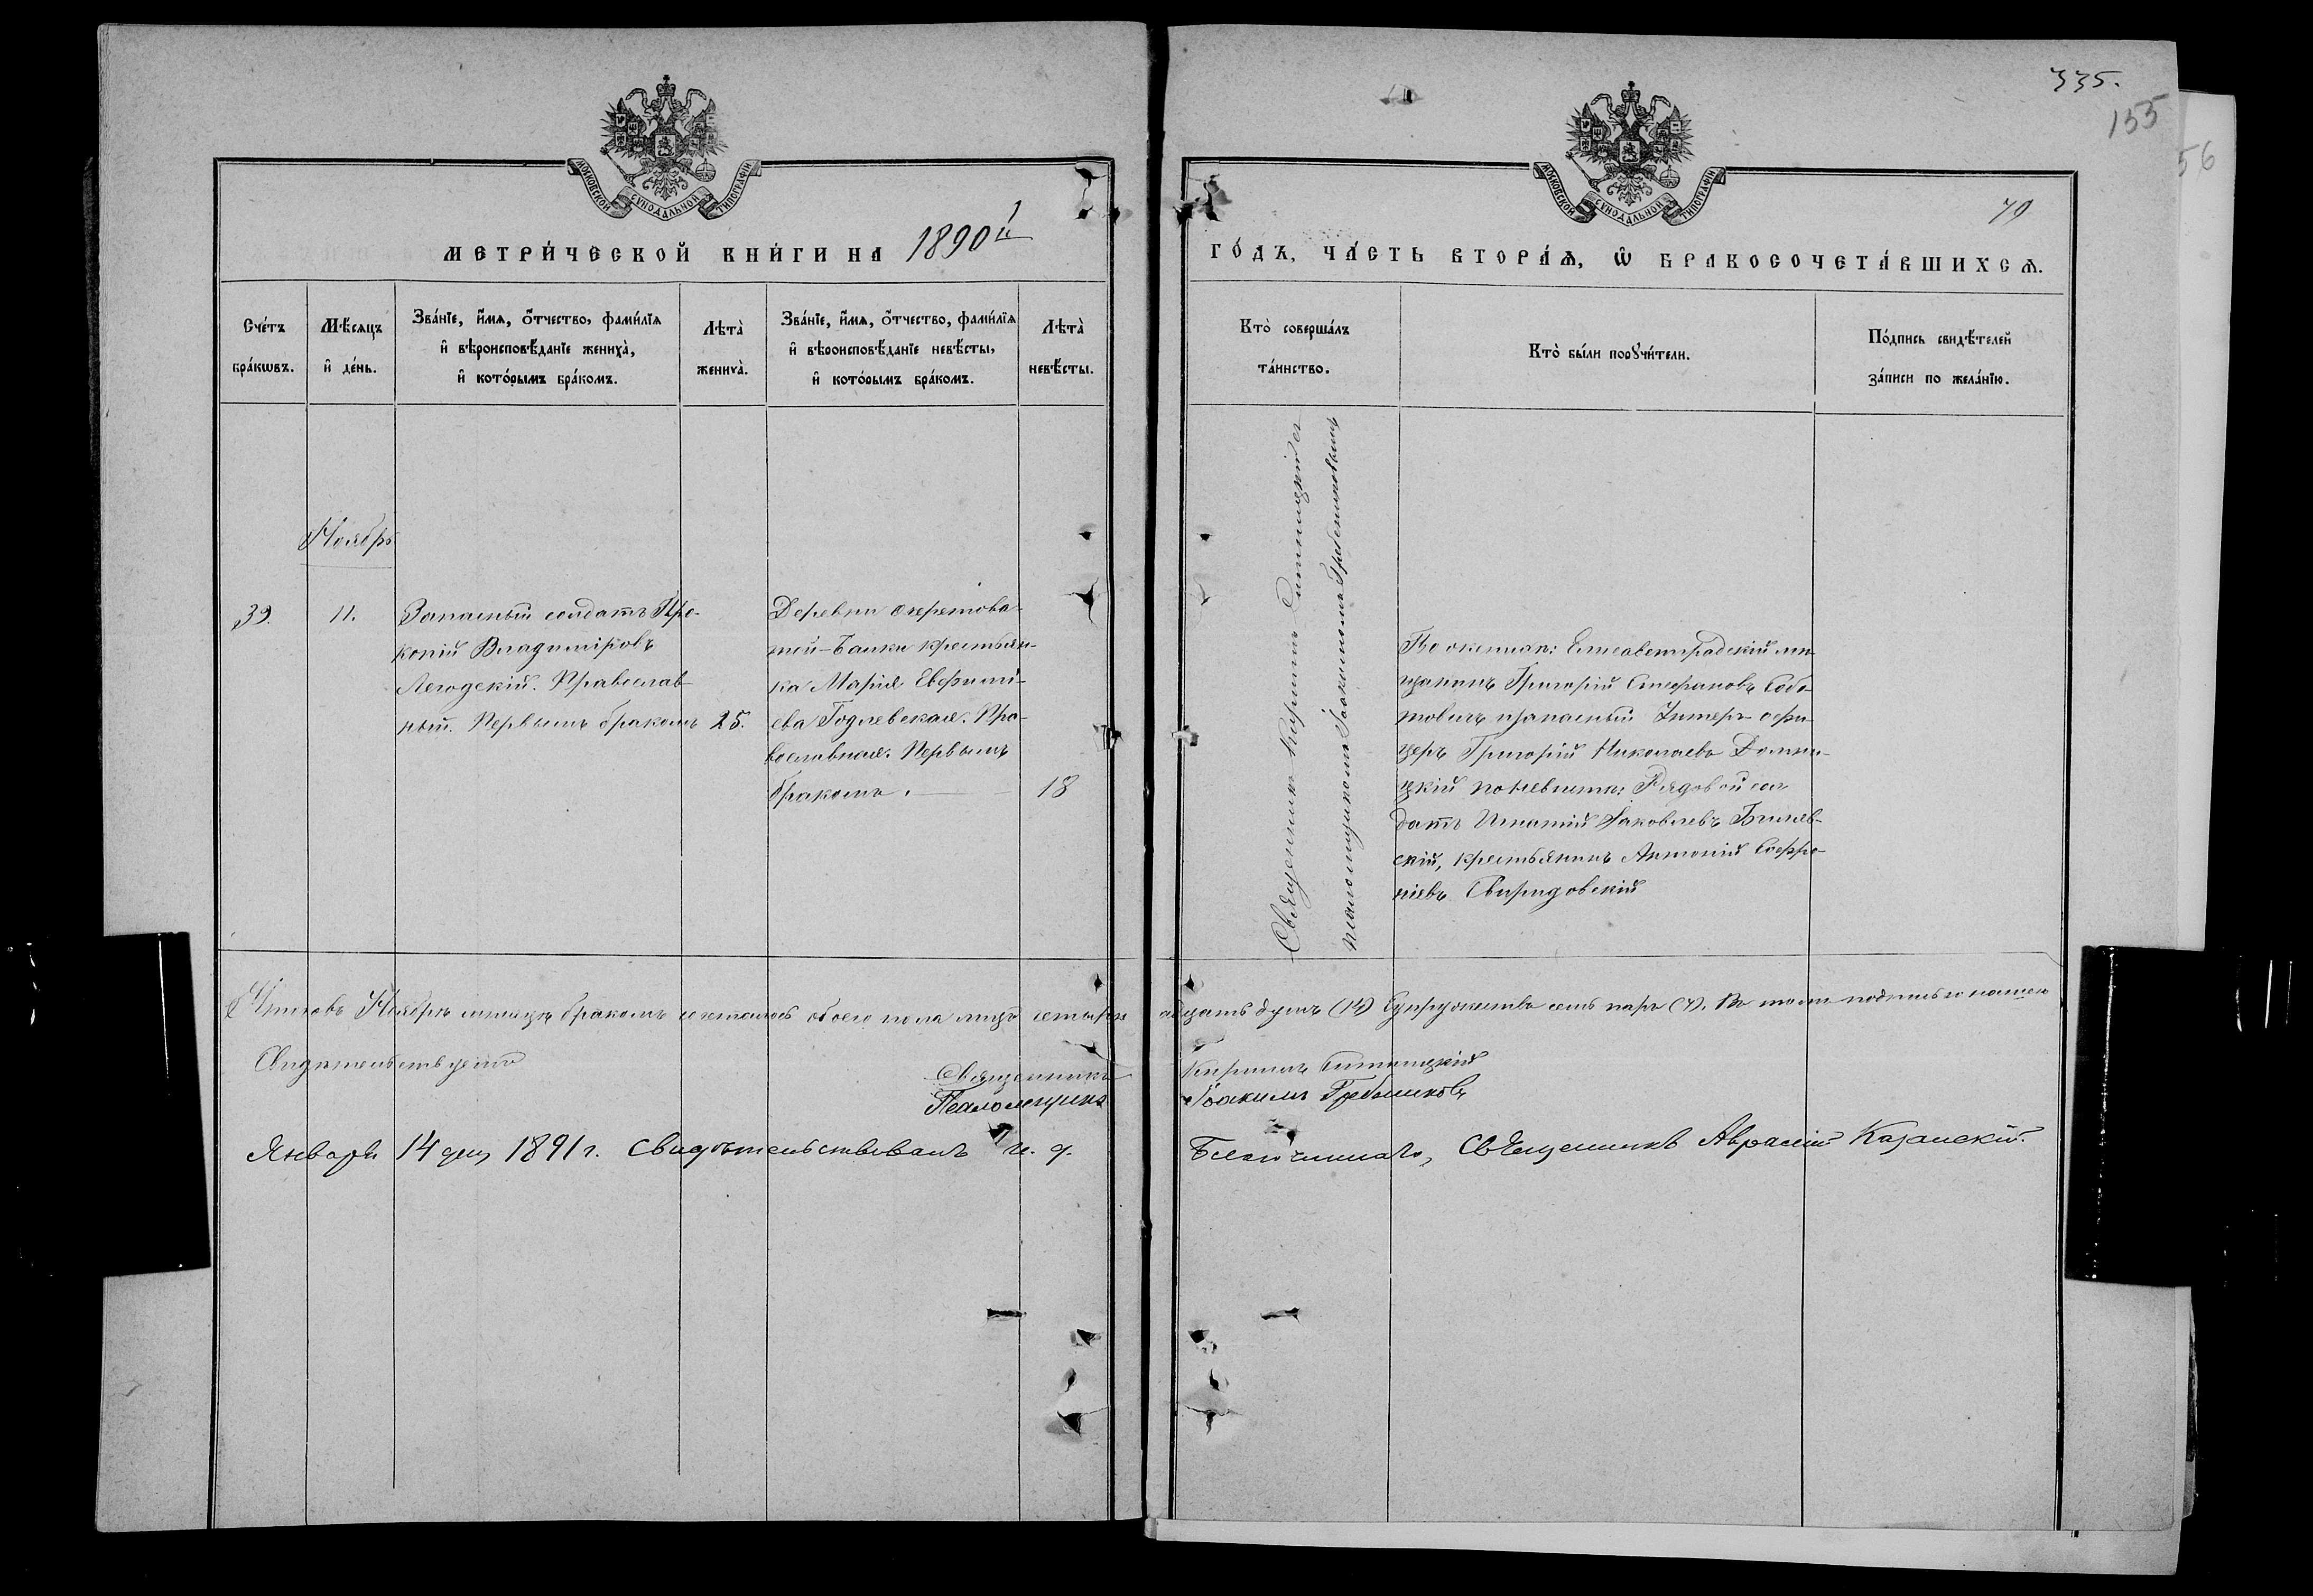 335.
155
56
79
МОСКОВСКОЙ СУНОДАЛЬНОЙ ТИПОГРАФІИ
МОСКОВСКОЙ СУНОДАЛЬНОЙ ТИПОГРАФІИ
МЕТРИ́ЧЕСКОЙ КНИ́ГИ НА 1890й
ГО́ДЪ, ЧА́СТЬ ВТОРА́Ѧ, Ѡ БРАКОСОЧЕТА́ВШИХСѦ.
Сче́тъ
бра́кωвъ.
Мѣ́сяцъ
и҆ де́нь.
Зва́нїе, и҆́мѧ, о҆́тчество, фами́лїѧ
и҆ вѣроисповѣ́данїе жениха̀,
и҆ кото́рымъ бра́комъ.
Лѣта̀
жениха̀.
Зва́нїе, и҆́мѧ, о҆́тчество, фами́лїѧ
и҆ вѣроисповѣ́данїе невѣ́сты,
и҆ кото́рымъ бра́комъ.
Лѣта̀
невѣ́сты.
Кто̀ соверша́лъ
та́инство.
Кто̀ бы́ли порꙋчи́тели.
По́дпись свидѣ́телей
за́писи по жела́нїю.
Ноябрь
39.
11.
Запасный солдатъ Про-
копій Владиміровъ
Легодскій. Православ-
ный. Первымъ бракомъ
25.
Деревни Очеретова-
той-Балки крестьян-
ка Марія Евфимі-
ева Годлевская. Пра-
вославная. Первымъ
бракомъ.
18
Священникъ Кириллъ Ситницкій съ
псаломщикомъ Іоакимомъ Гребенниковымъ
По женихѣ: Елисаветградскій мѣ-
щанинъ Григорій Стефановъ Собо-
товичъ и запасный Унтеръ-офи-
церъ Григорій Николаевъ Домни-
цкій по невѣстѣ: Рядовой сол-
датъ Игнатій Яковлевъ Билев-
скій, крестьянинъ Антоній Софро-
ніевъ Свиридовскій
Итого въ Ноябрѣ мѣсяцѣ бракомъ сочеталось обоего пола лицъ четырнадцать душъ (14) Супружествъ семь паръ (7). Въ томъ подписью нашею
Свидѣтельствуемъ
Священникъ Кириллъ Ситницкій
Псаломщикъ Іоакимъ Гребенниковъ
Января 14 дня, 1891 г. свидѣтельствовалъ и. д. Благочиннаго, Священникъ Аврамій Казанскій.